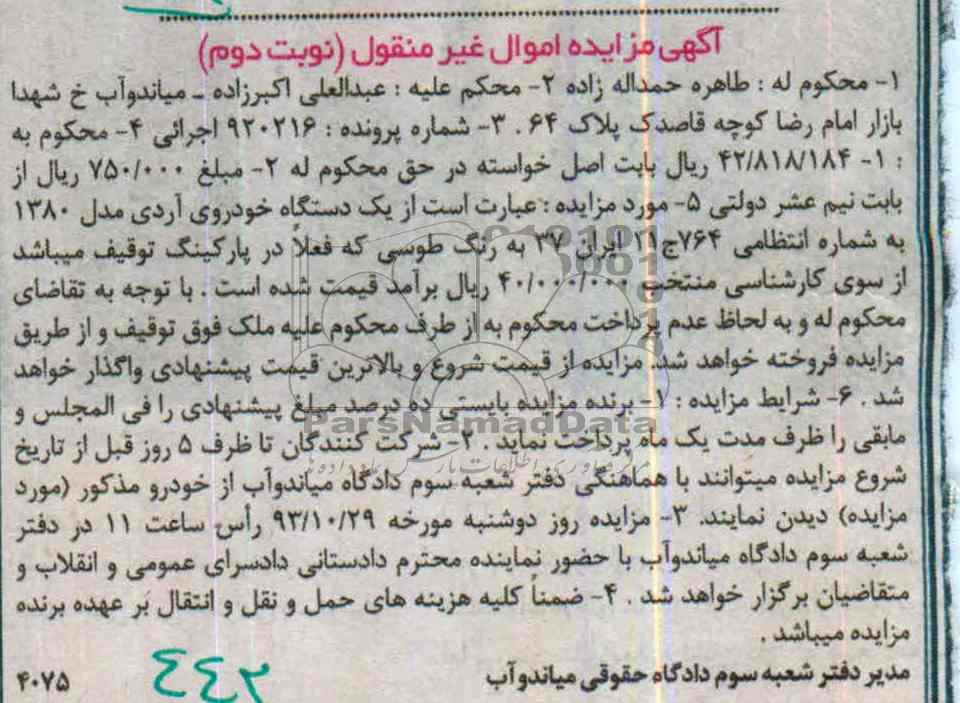 آگهی مزایده اموال غیر منقول (نوبت دوم)
۱- محکوم له : طاهره حمداله زاده ۲- محکم علیه : عبدالعلی اکبرزاده ـ میاندوآب خ شهدا
بازار امام رضا کوچه قاصدک پلاک ۶۴ . ۳- شماره پرونده : ۹۲۰۲۱۶ اجرائی ۴- محکوم به
: ۱- ۴۲/۸۱۸/۱۸۴ ریال بابت اصل خواسته در حق محکوم له ۲- مبلغ ۷۵۰/۰۰۰ ریال از
بابت نیم عشر دولتی ۵- مورد مزایده : عبارت است از یک دستگاه خودروی آردی مدل ۱۳۸۰
به شماره انتظامی ۷۶۴ج۲۱ ایران ۳۷ به رنگ طوسی که فعلاً در پارکینگ توقیف میباشد
از سوی کارشناسی منتخب ۴۰/۰۰۰/۰۰۰ ریال برآمد قیمت شده است . با توجه به تقاضای
محکوم له و به لحاظ عدم پرداخت محکوم به از طرف محکوم علیه ملک فوق توقیف و از طریق
مزایده فروخته خواهد شد. مزایده از قیمت شروع و بالاترین قیمت پیشنهادی واگذار خواهد
شد . ۶- شرایط مزایده : ۱- برنده مزایده بایستی ده درصد مبلغ پیشنهادی را فی المجلس و
ParsNamadData
مابقی را ظرف مدت یک ماه پرداخت نماید . ۲- شرکت کنندگان تا ظرف ۵ روز قبل از تاریخ
شروع مزایده میتوانند با هماهنگی دفتر شعبه سوم دادگاه میاندوآب از خودرو مذکور (مورد
مزایده) دیدن نمایند. ۳- مزایده روز دوشنبه مورخه ۹۳/۱۰/۲۹ رأس ساعت ۱۱ در دفتر
شعبه سوم دادگاه میاندوآب با حضور نماینده محترم دادستانی دادسرای عمومی و انقلاب و
متقاضیان برگزار خواهد شد . ۴- ضمناً کلیه هزینه های حمل و نقل و انتقال بَر عهده برنده
مزایده میباشد .
مدیر دفتر شعبه سوم دادگاه حقوقی میاندوآب
۴۰۷۵
۴۴۲